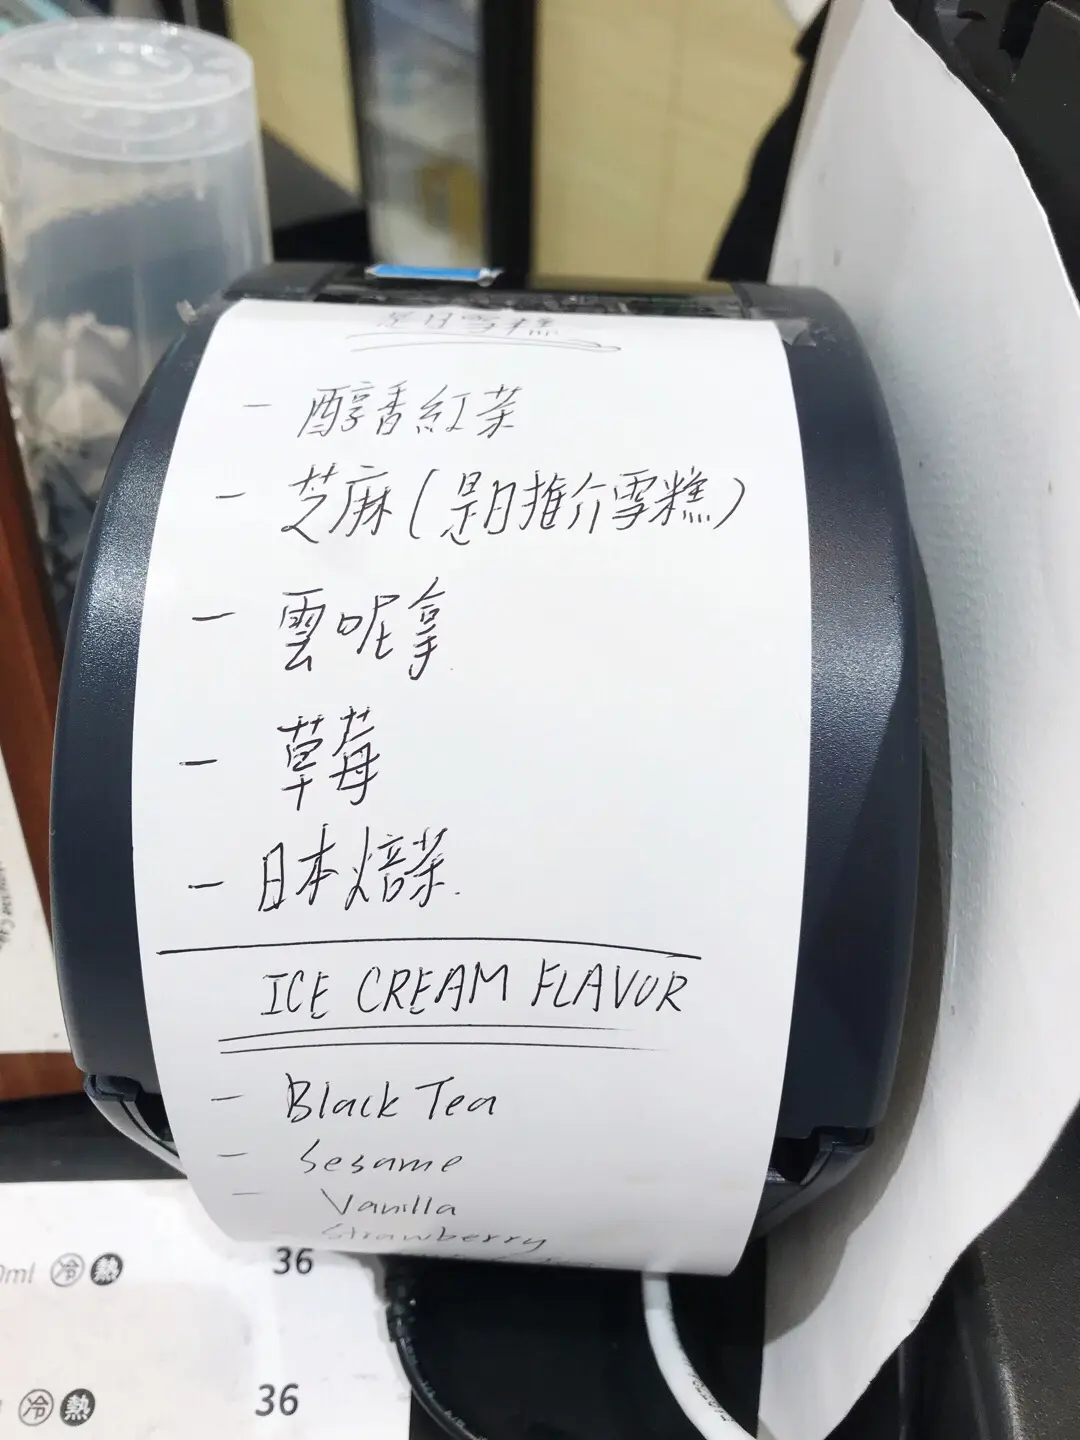 是日雪糕
- 醇香紅茶
- 芝麻(是日推介雪糕)
- 雲呢拿
- 草莓
- 日本焙茶
ICE CREAM FLAVOR
- Black Tea
- Sesame
- Vanilla
Strawberry
0ml 冷 熱 36
冷 熱 36